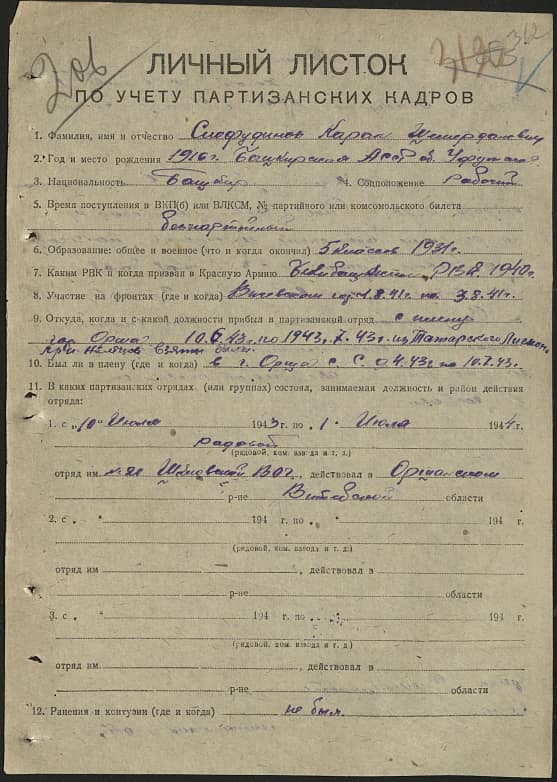 206
362
ЛИЧНЫЙ ЛИСТОК
ПО УЧЕТУ ПАРТИЗАНСКИХ КАДРОВ
1. Фамилия, имя и отчество
2. Год и место рождения 1916 г. Башкирская Асср
3. Национальность Башкир 4. Соцположение рабочий
5. Время поступления в ВКП(б) или ВЛКСМ, № партийного или комсомольского билета
безпартийный
6. Образование: общее и военное (что и когда окончил) 5 классов 1931 г.
7. Каким РВК и когда призван в Красную Армию РВК 1940 г.
8. Участие на фронтах (где и когда) 1.8.41 г. по 3.8.41 г.
9. Откуда, когда и с какой должности прибыл в партизанский отряд с
Орша 10.6.43 г. по 1943, 7.43 г. из Татарского
при
10. Был ли в плену (где и когда) в г. Орша с 43 г. по 10.7.43.
11. В каких партизанских отрядах (или группах) состоял, занимаемая должность и район действия
отряда:
1. с „10" Июля 1943 г. по „1" Июля 1944 г.
рядовой
(рядовой, ком. взвода и т. д.)
отряд им действовал в Оршанском
р-не Витебской области
2. с „ " 194 г. по „ " 194 г.
(рядовой, ком. взвода и т. д.)
отряд им. , действовал в
р-не области
3. с „ " 194 г. по 194 г.
(рядовой, ком. взвода и т. д.)
отряд им. , действовал в
р-не области
12. Ранения и контузии (где и когда) не был.